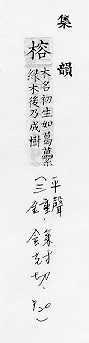 集韻
榕
木名初生如葛藟
緣木後乃成樹
(平聲
三鍾
封切
20)